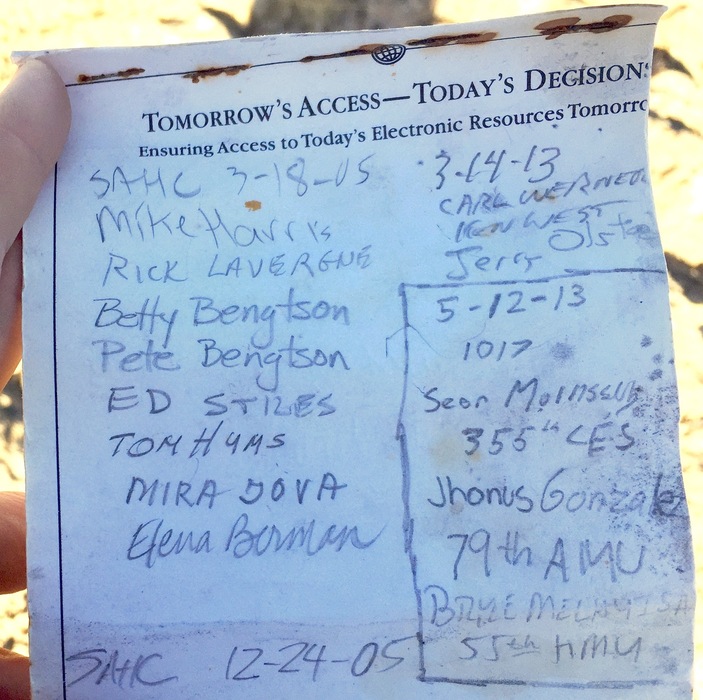 TOMORROW'S ACCESS—TODAY'S DECISIONS
Ensuring Access to Today's Electronic Resources Tomorro
SAHC 3-18-05
Mike Harris
RICK LAVERGNE
Betty Bengtson
Pete Bengtson
ED STILES
TOM HYMS
MIRA JOVA
Elena Borman
SAHC 12-24-05
3-14-13
CARL
KEN WEST
Jerry
5-12-13
1017
Sean
355th CES
Jhonus Gonzale
79th AMU
55th HMU